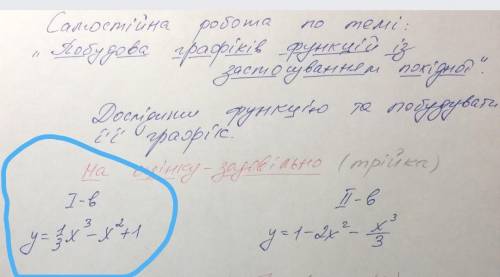 Самостійна робота по темі:
„Побудова графіків функцій із
застосуванням похідної".
Дослідити функцію та побудувати
її графік.
На оцінку-задовільно (трійка)
I-в
y=1/3x³-x²+1
II-в
y=1-2x²-x³/3